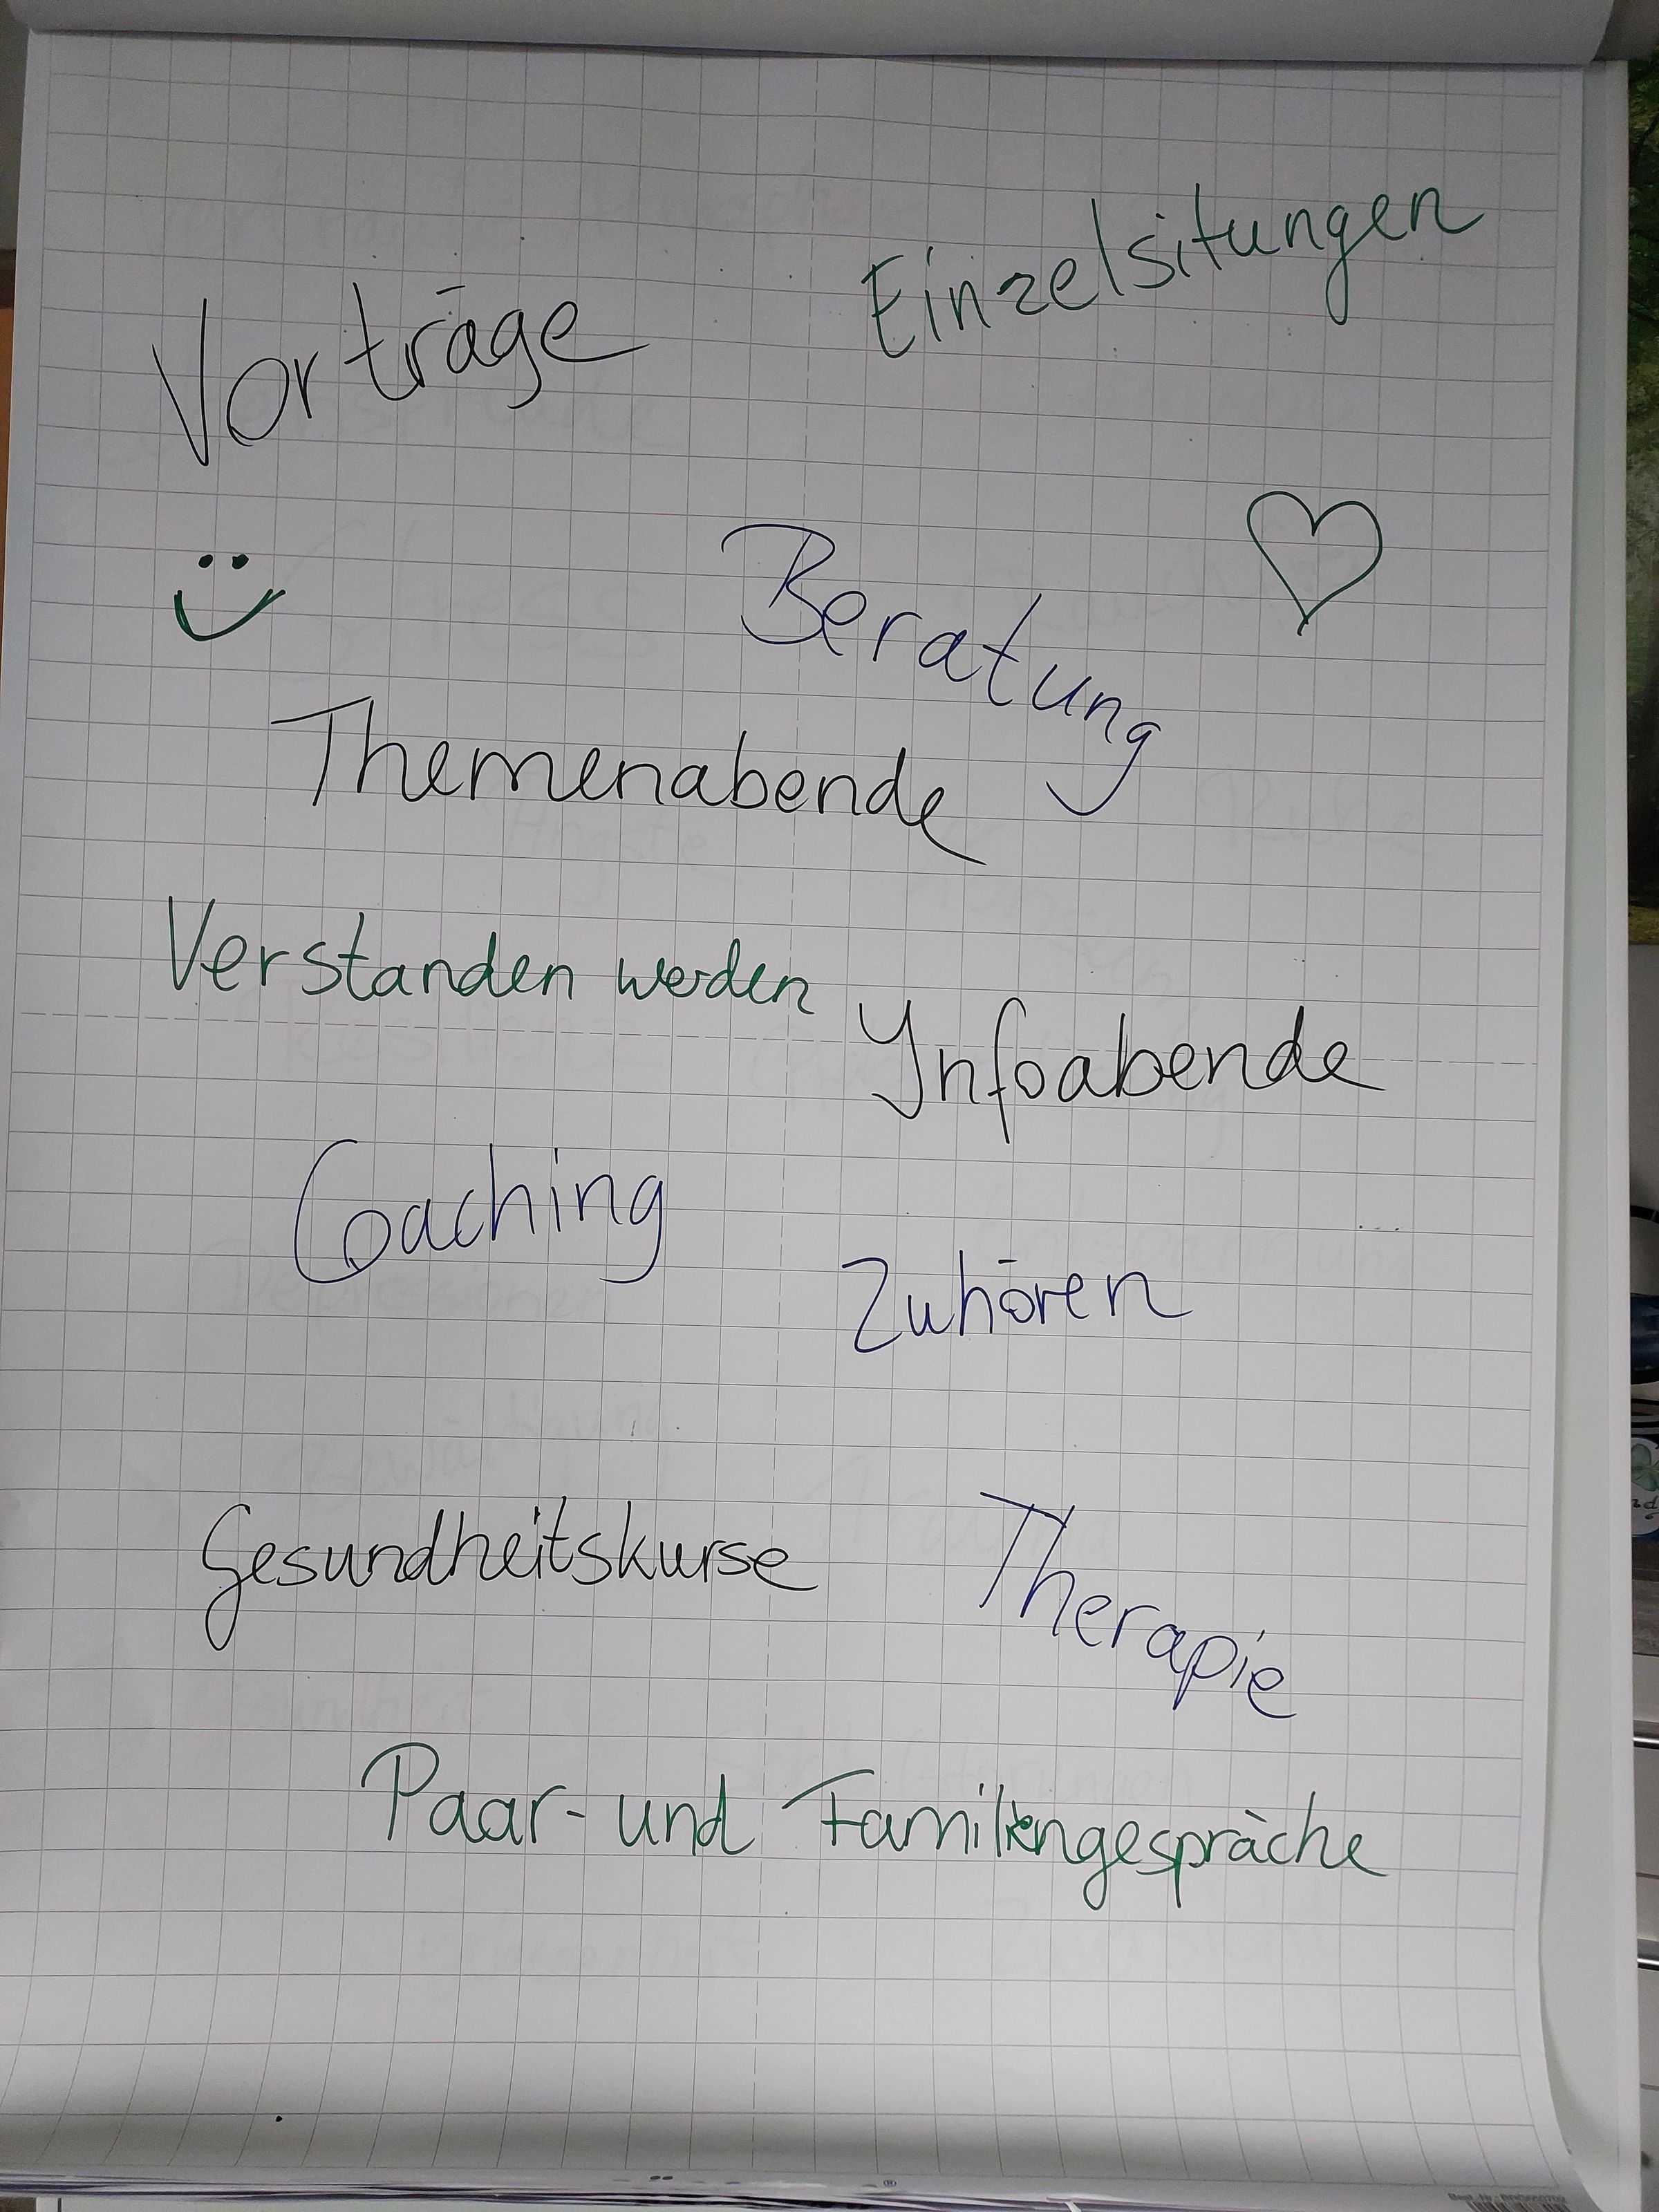 Einzelsitungen
Vorträge
Beratung
Themenabende
Verstanden werden
Infoabende
Coaching
Zuhören
Gesundheitskurse
Therapie
Paar- und Familiengespräche